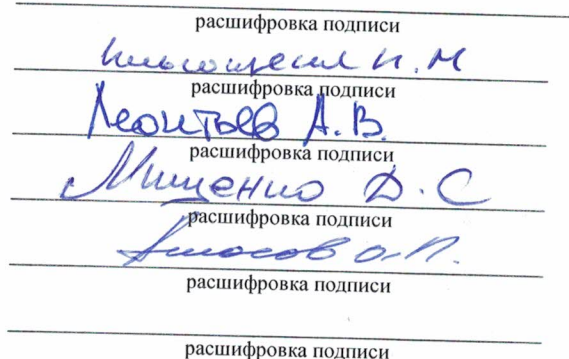 расшифровка подписи
И.М
расшифровка подписи
Леонтьев А.В.
расшифровка подписи
Мищенко Д.С
расшифровка подписи
расшифровка подписи
расшифровка подписи